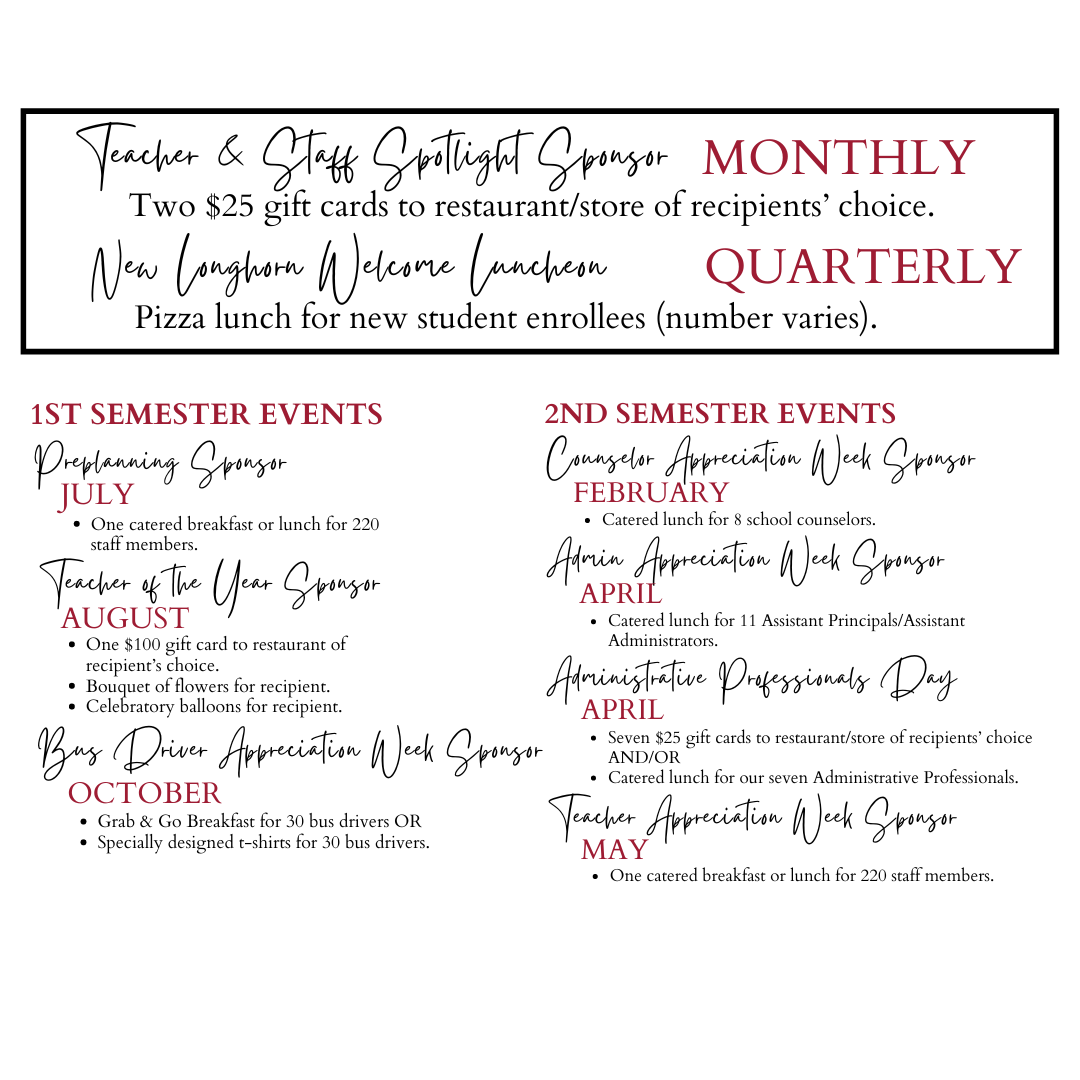 Teacher & Staff Spotlight Sponsor MONTHLY
Two $25 gift cards to restaurant/store of recipients’ choice.
New Longhorn Welcome Luncheon QUARTERLY
Pizza lunch for new student enrollees (number varies).
1ST SEMESTER EVENTS
Preplanning Sponsor
JULY
• One catered breakfast or lunch for 220
staff members.
Teacher of the Year Sponsor
AUGUST
• One $100 gift card to restaurant of
recipient’s choice.
• Bouquet of flowers for recipient.
• Celebratory balloons for recipient.
Bus Driver Appreciation Week Sponsor
OCTOBER
• Grab & Go Breakfast for 30 bus drivers OR
• Specially designed t-shirts for 30 bus drivers.
2ND SEMESTER EVENTS
Counselor Appreciation Week Sponsor
FEBRUARY
• Catered lunch for 8 school counselors.
Admin Appreciation Week Sponsor
APRIL
• Catered lunch for 11 Assistant Principals/Assistant
Administrators.
Administrative Professionals Day
APRIL
• Seven $25 gift cards to restaurant/store of recipients’ choice
AND/OR
• Catered lunch for our seven Administrative Professionals.
Teacher Appreciation Week Sponsor
MAY
• One catered breakfast or lunch for 220 staff members.